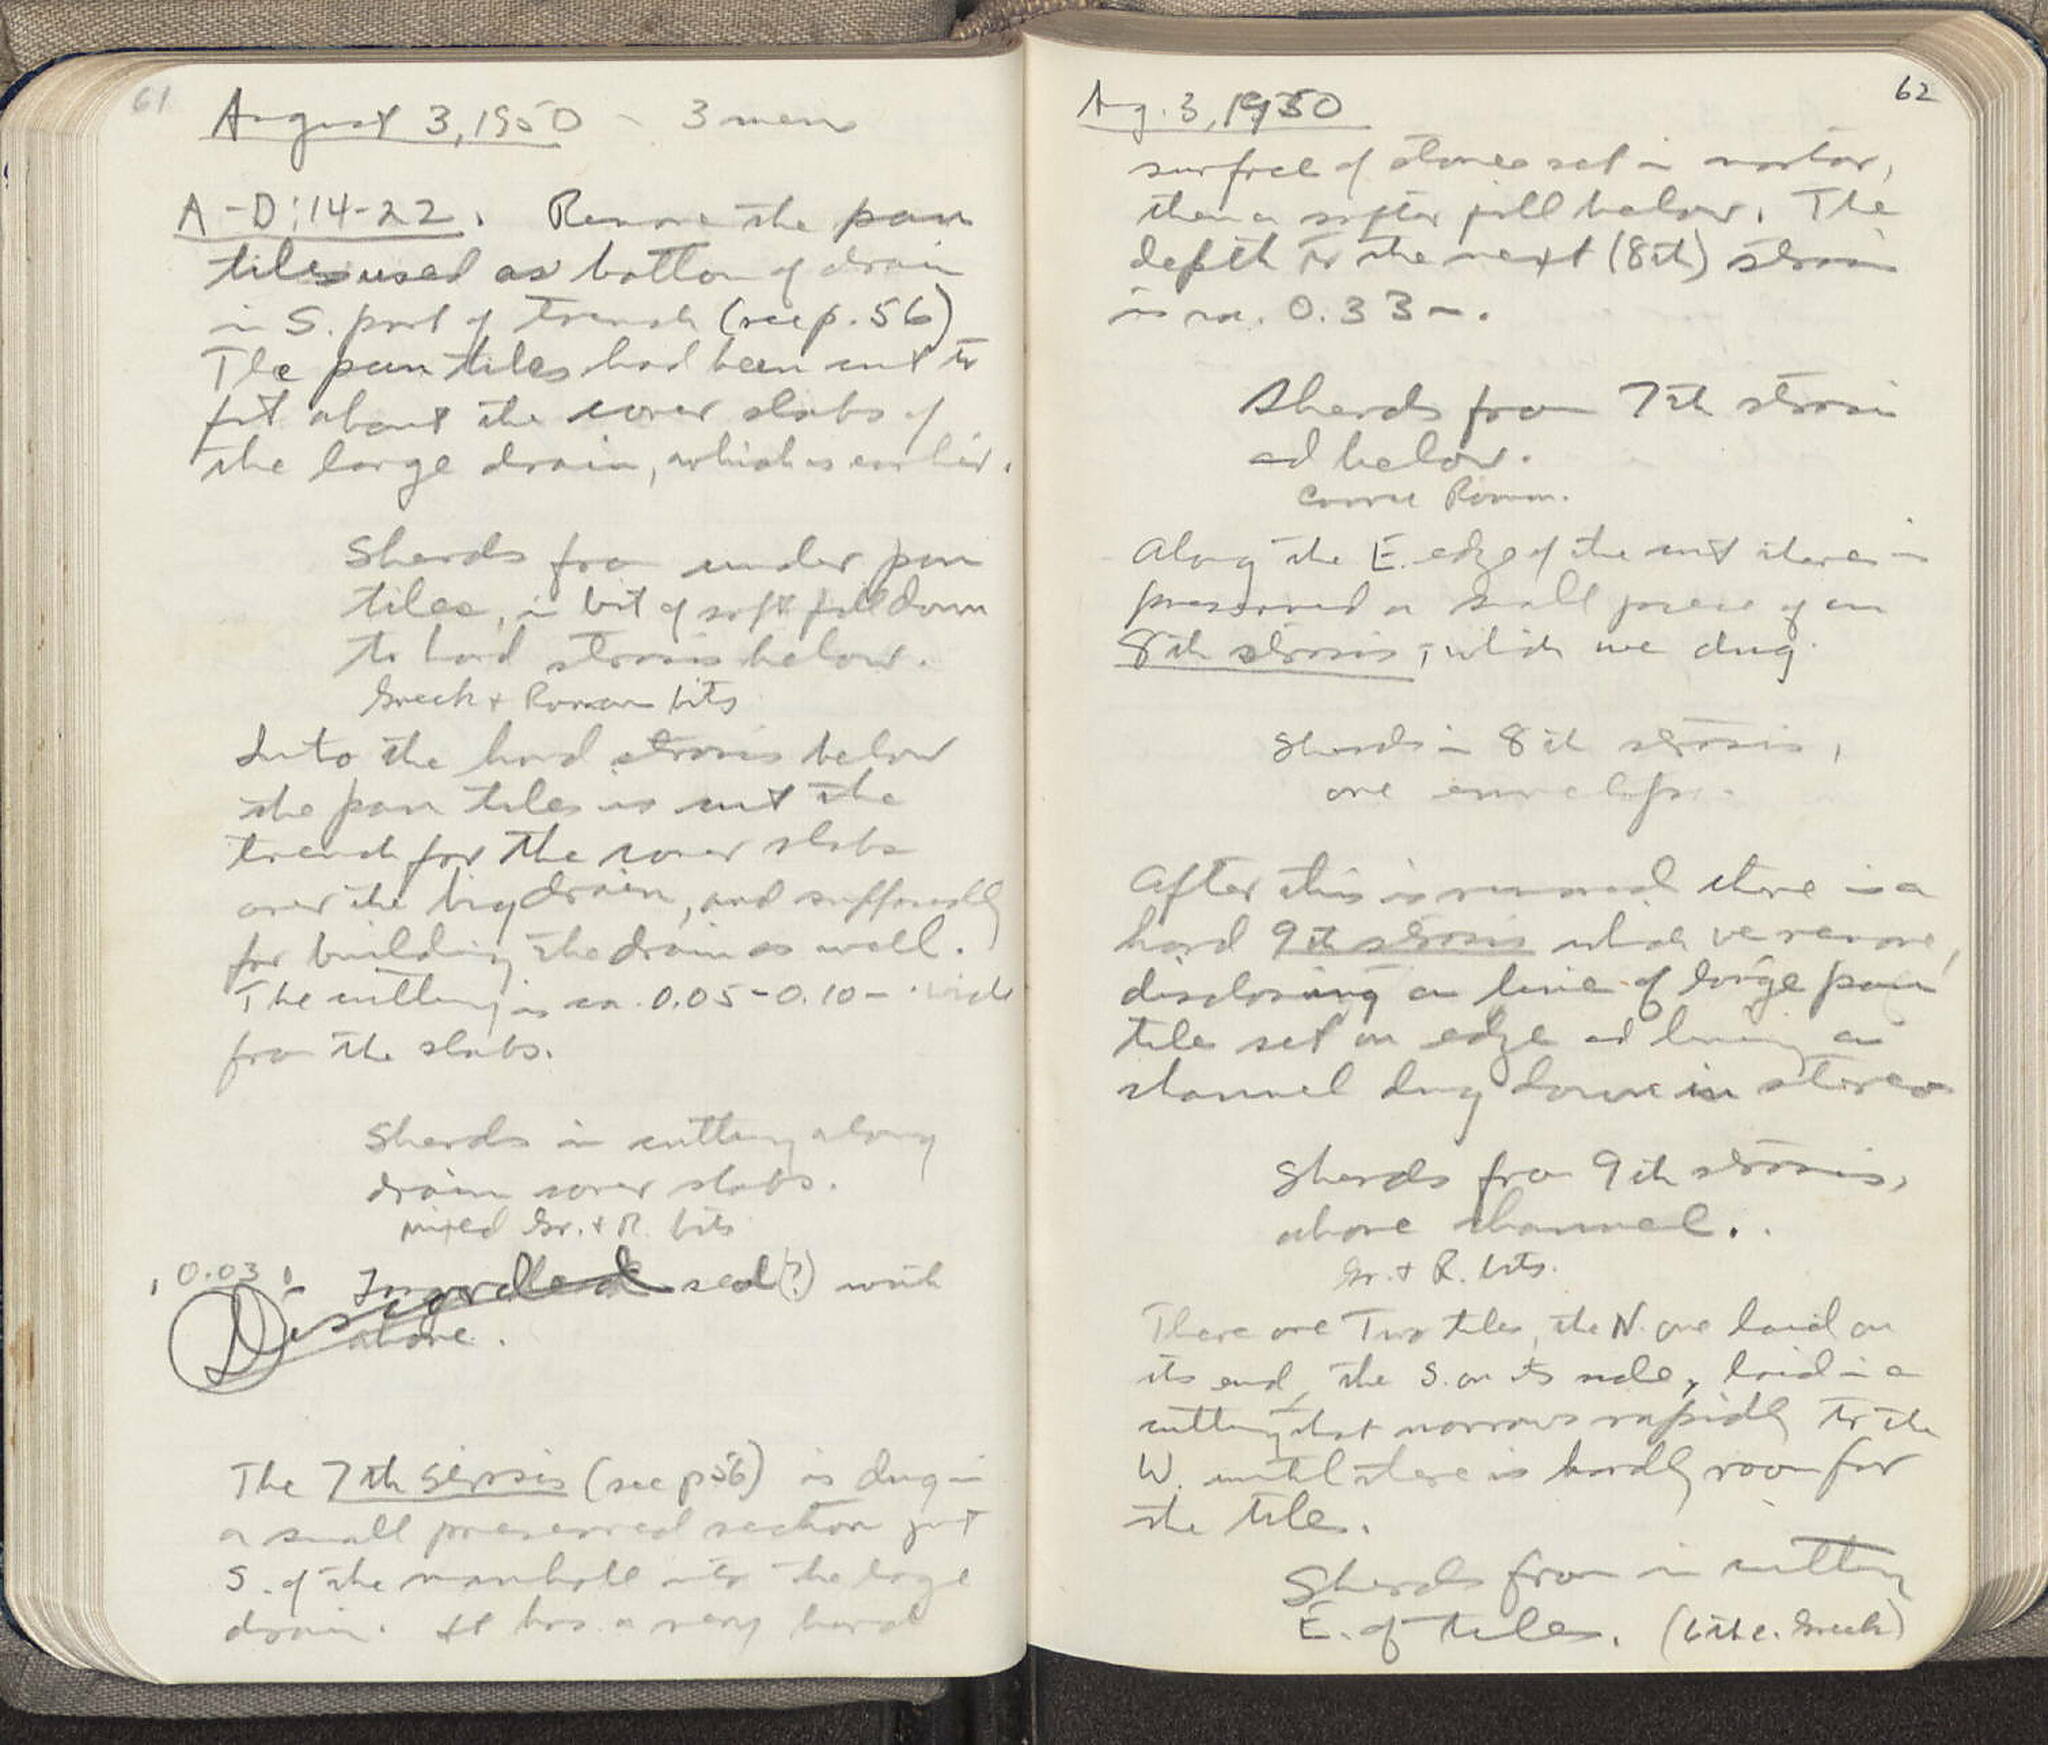 61
August 3, 1950 - 3 men
A-D:14-22. Remove the pan
tiles used as bottom of drain
in S. part of trench (see p. 56)
The pan tiles had been cut to
fit about the cover slabs of
the large drain, which is earlier.
Sherds from under pan
tiles, in bit of soft fill down
to hard strosis below.
Greek + Roman bits
Into the hard strosis below
the pan tiles is cut the
trench for the cover slabs
over the big drain, and supposedly
for building the drain as well.
The cutting is ca. 0.05-0.10 m. wide
from the slabs.
Sherds in cutting along
drain cover slabs.
mixed Gr. + R. bits
0.03
seal(?) with
above.
Discarded
The 7th strosis (see p 56) is dug in
a small preserved section just
S. of the manhole into the large
drain. It has a very hard
62
Aug. 3, 1950
surface of stones set in mortar,
then a softer fill below. The
depth to the next (8th) strosis
is ca. 0.33 m.
Sherds from 7th strosis
and below.
Coarse Roman.
Along the E. edge of the cut there is
preserved a small piece of an
8th strosis, which we dug.
Sherds in 8th strosis,
one envelope.
After this is removed there is a
hard 9th strosis which we remove,
disclosing a line of large pan
tile set on edge and lining a
channel dug down in stereo
Sherds from 9th strosis,
above channel.
Gr. + R. bits.
There are two tiles, the N. one laid on
its end, the S. on its side, laid in a
cutting that narrows rapidly to the
W. until there is hardly room for
the tile.
Sherds from in cutting
E. of tiles. (6th c. Greek)